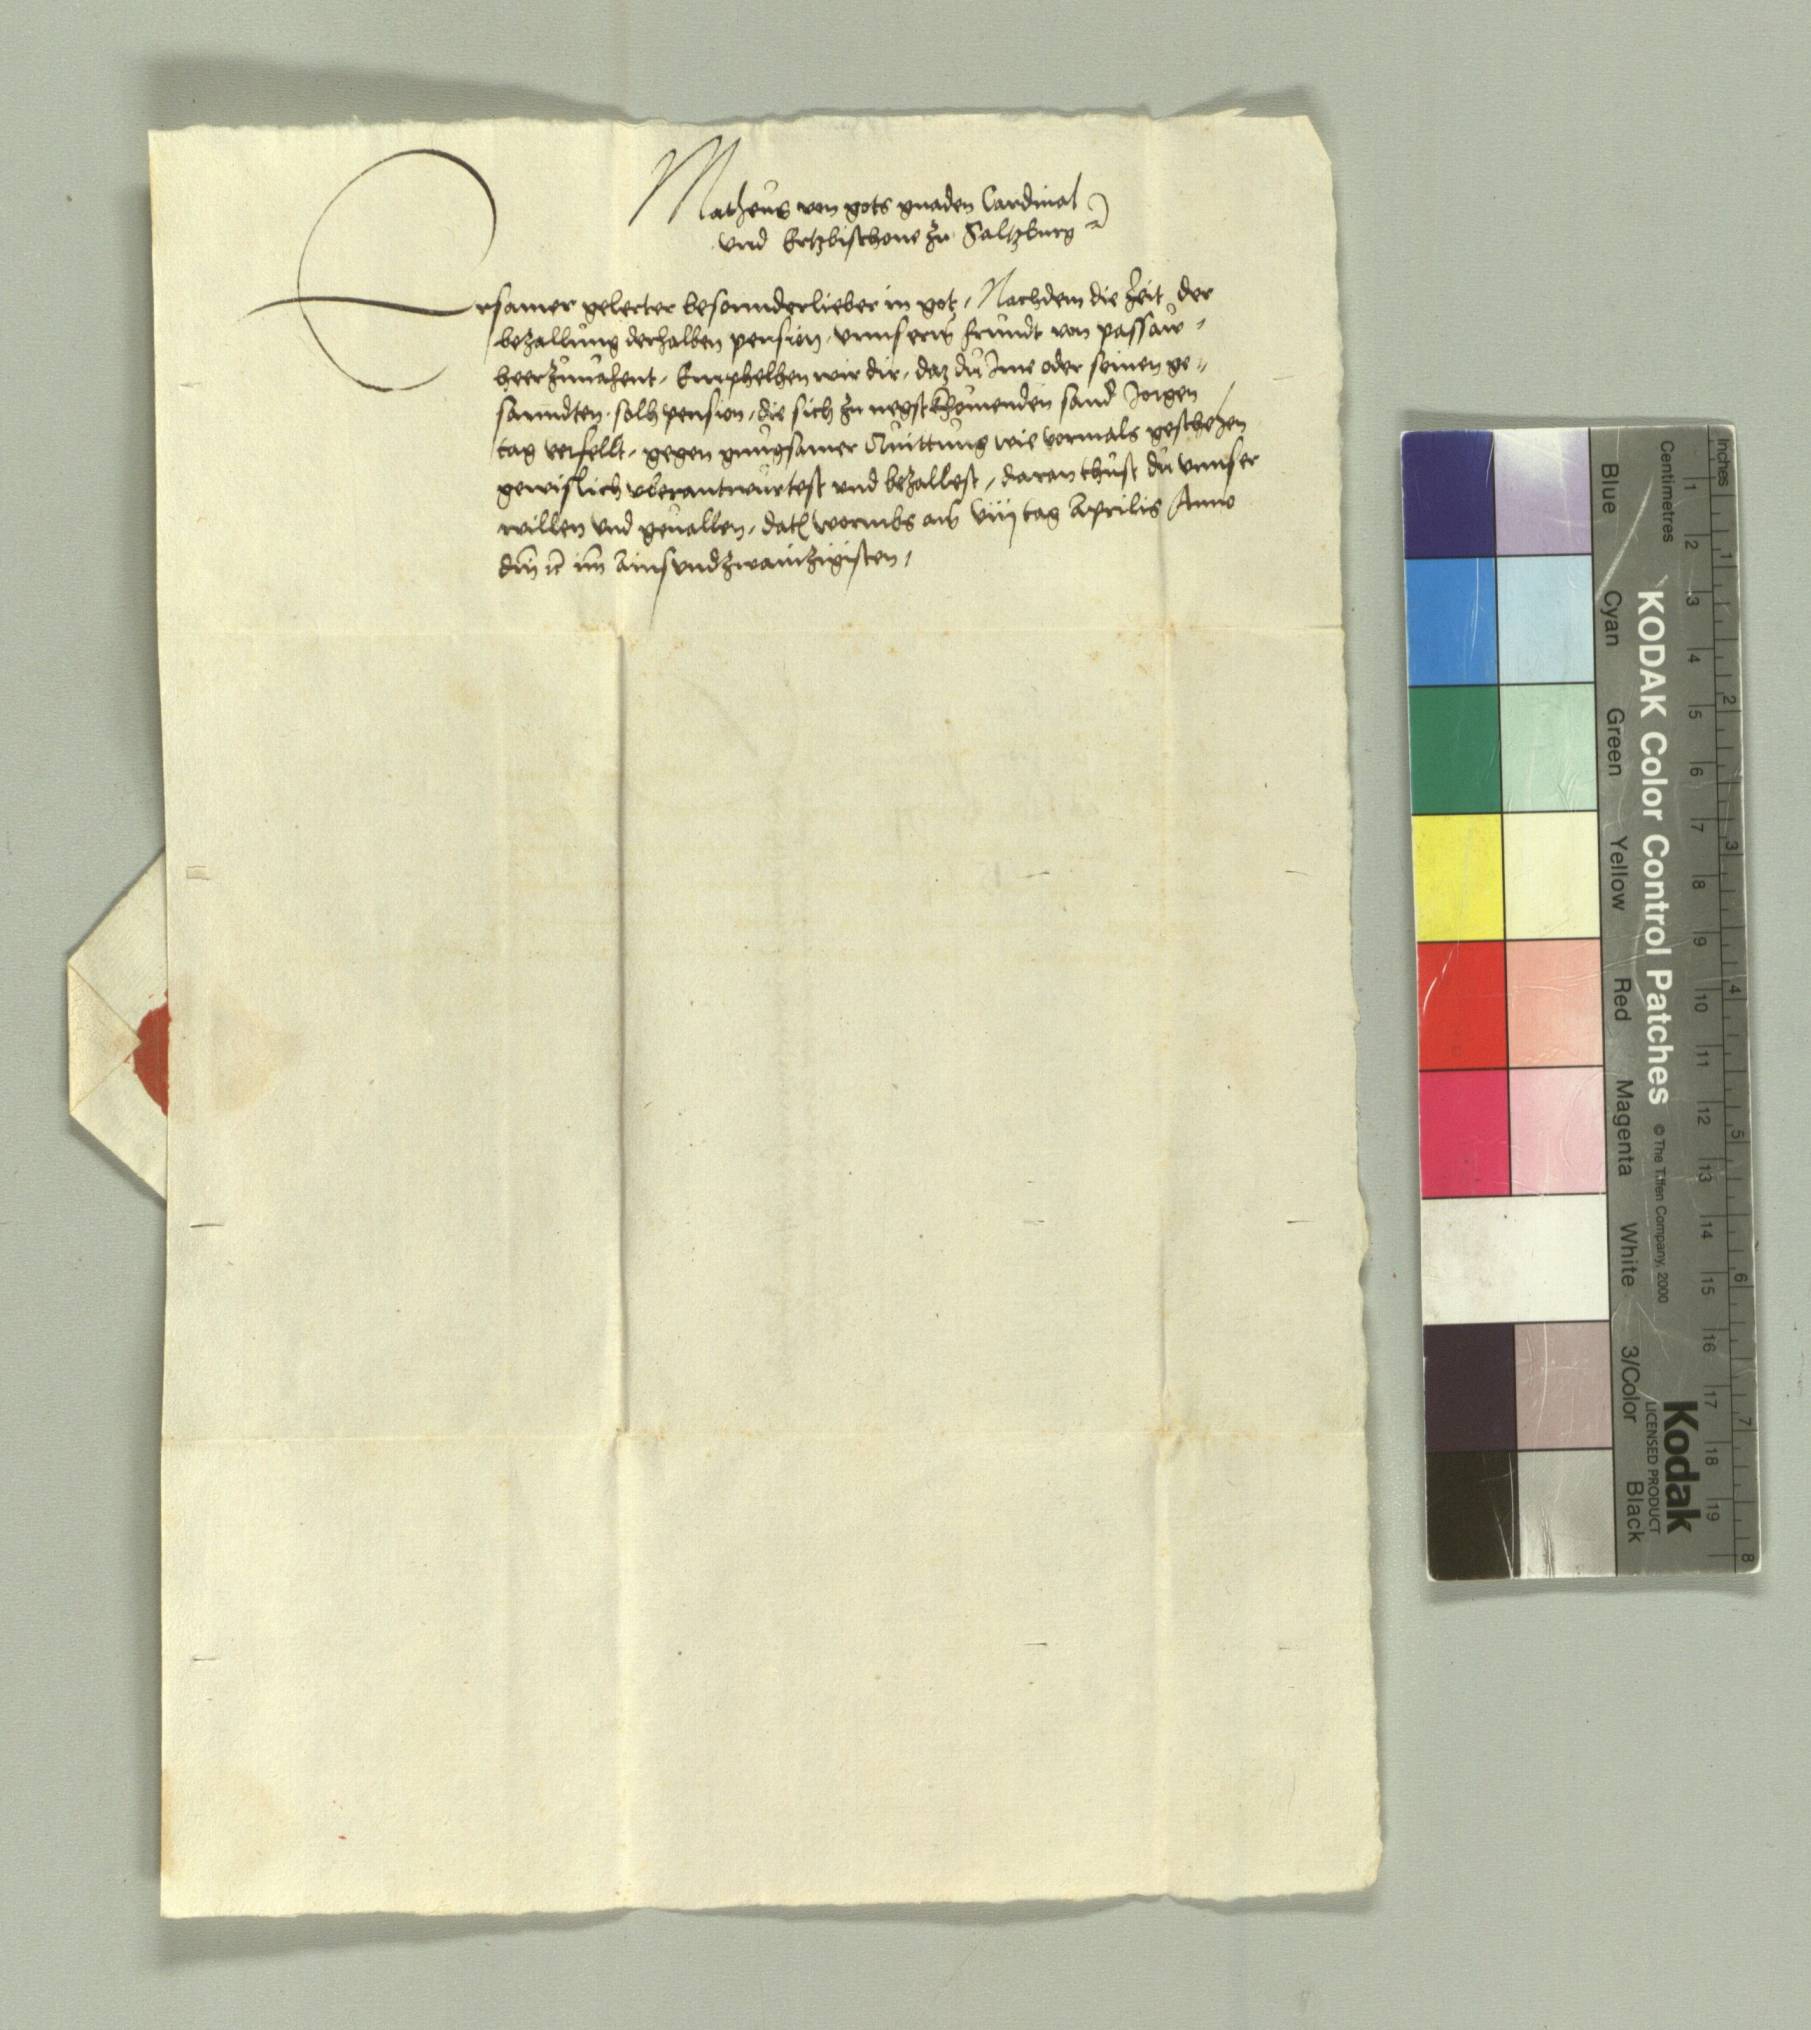 Matheus von gots gnaden Cardinal
und Ertzbischove zu Saltzburg
Ersamer gelerter besonnderlieber in got, Nachdem die Zeit der
bezallung derhalben pension, unnserm frundt von passaw
heerzunahent, Emphelhen wir dir, daz du Ime oder seinen ge-
sanndten solh pension, die sich zu negstkhomenden sand Jorgen
tag verfellt, gegen gnugsamer Quittung wie vormals geschehen
gewislich uberantwurtest und bezallest, daran thust du unnser
willen und gevallen, dat wormbs am viij tag Aprilis Anno
dm im Ainsundzwainzigisten,
Inches
Centimetres
1 2 3 4 5 6 7 8
1 2 3 4 5 6 7 8 9 10 11 12 13 14 15 16 17 18 19
KODAK Color Control Patches
© The Tiffen Company, 2000
Kodak
LICENSED PRODUCT
Blue Cyan Green Yellow Red Magenta White 3/Color Black